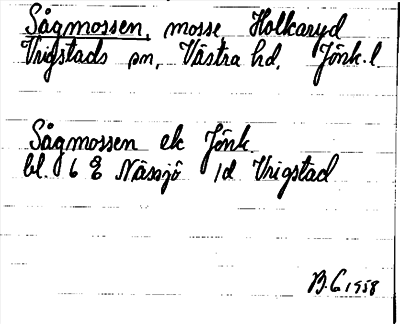 Sågmossen, mosse, Holkaryd
Vrigstads sn, Västra hd, Jönk. l.
Sågmossen ek Jönk.
bl. 6 E Nässjö 1d Vrigstad
B.G 1958